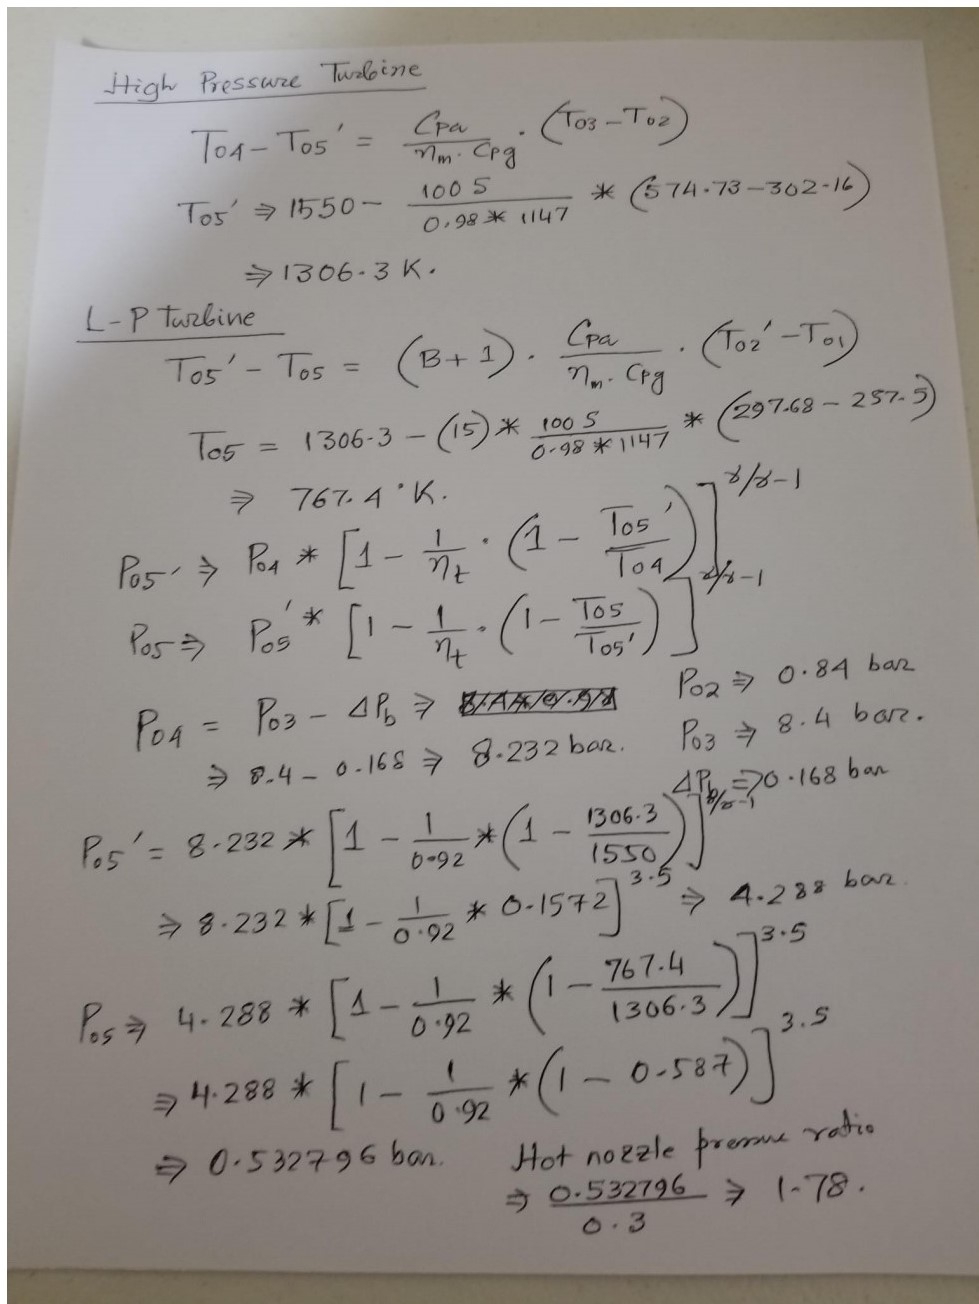 High Pressure Turbine
T04 - T05' = Cpa / ηm. Cpg . (T03 - T02)
T05' ⇒ 1550 - 1005 / 0.98 * 1147 * (574.73 - 302.16)
⇒ 1306.3 K.
L-P turbine
T05' - T05 = (B + 1) . Cpa / ηm. Cpg . (T02' - T01)
T05 = 1306.3 - (15) * 1005 / 0.98 * 1147 * (297.68 - 257.5)
⇒ 767.4 °K.
P05' ⇒ P04 * [1 - 1/ηt . (1 - T05'/T04)]^γ/γ-1
P05 ⇒ P05' * [1 - 1/ηt . (1 - T05/T05')]^γ/γ-1
P04 = P03 - ΔPb ⇒
P02 ⇒ 0.84 bar
⇒ 8.4 - 0.168 ⇒ 8.232 bar.
P03 ⇒ 8.4 bar.
ΔPb ⇒ 0.168 bar
P05' = 8.232 * [1 - 1/0.92 * (1 - 1306.3/1550)]^γ/γ-1
⇒ 8.232 * [1 - 1/0.92 * 0.1572]^3.5 ⇒ 4.288 bar.
P05 ⇒ 4.288 * [1 - 1/0.92 * (1 - 767.4/1306.3)]^3.5
⇒ 4.288 * [1 - 1/0.92 * (1 - 0.587)]^3.5
⇒ 0.532796 bar.
Hot nozzle pressure ratio
⇒ 0.532796 / 0.3 ⇒ 1.78.